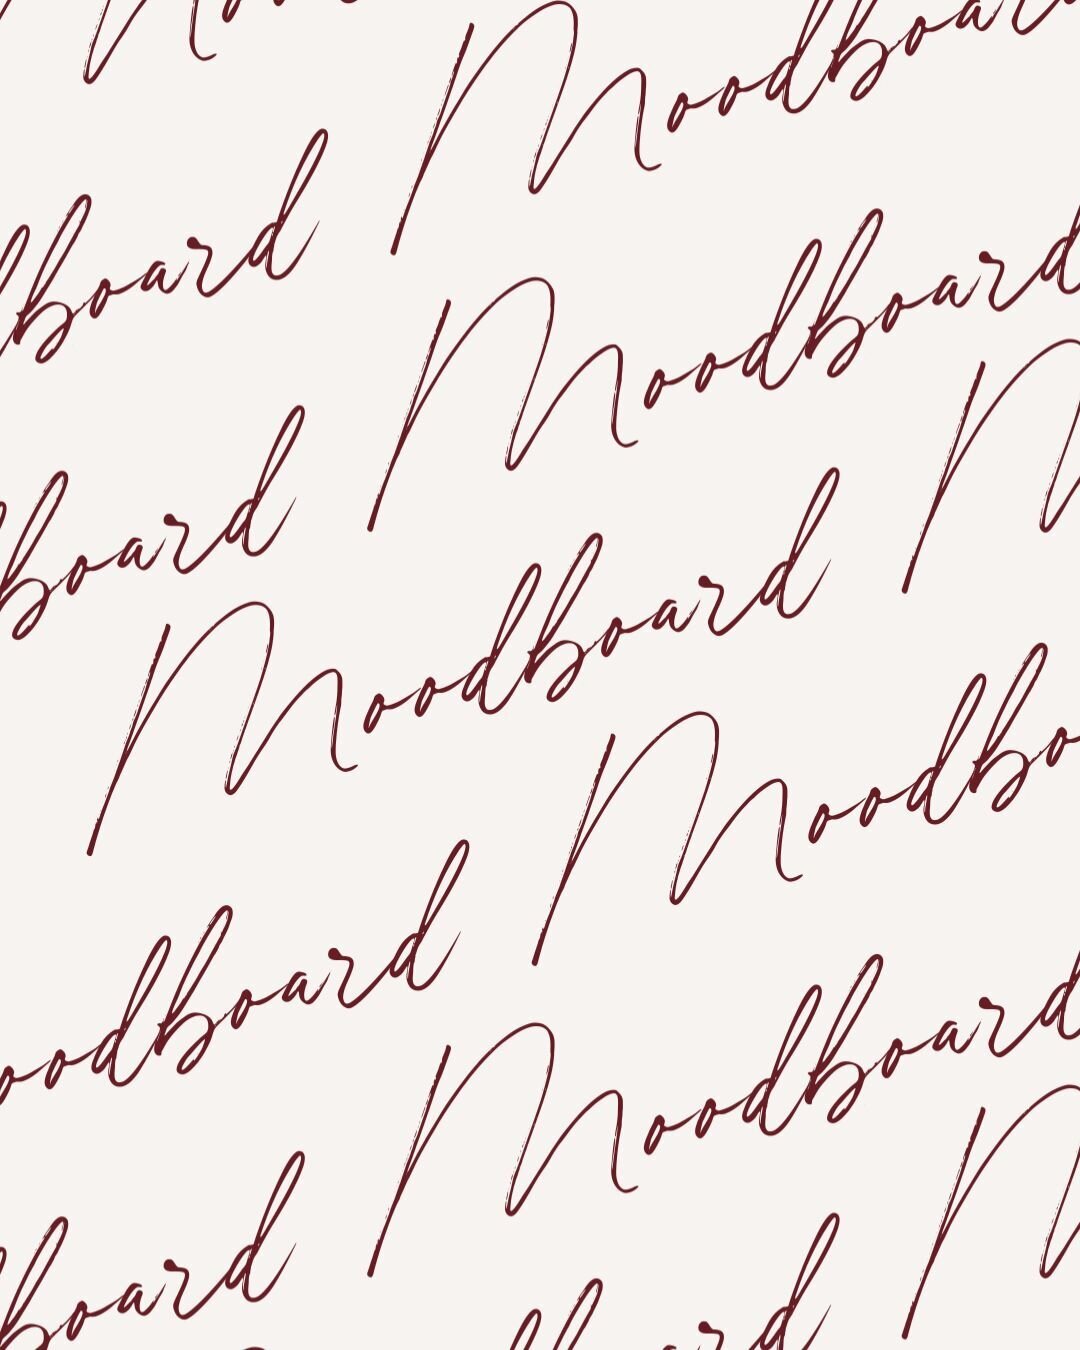 Moodboar
board
Moodboard
board
Moodboard
Moodbo
oodboard
Moodboard
board